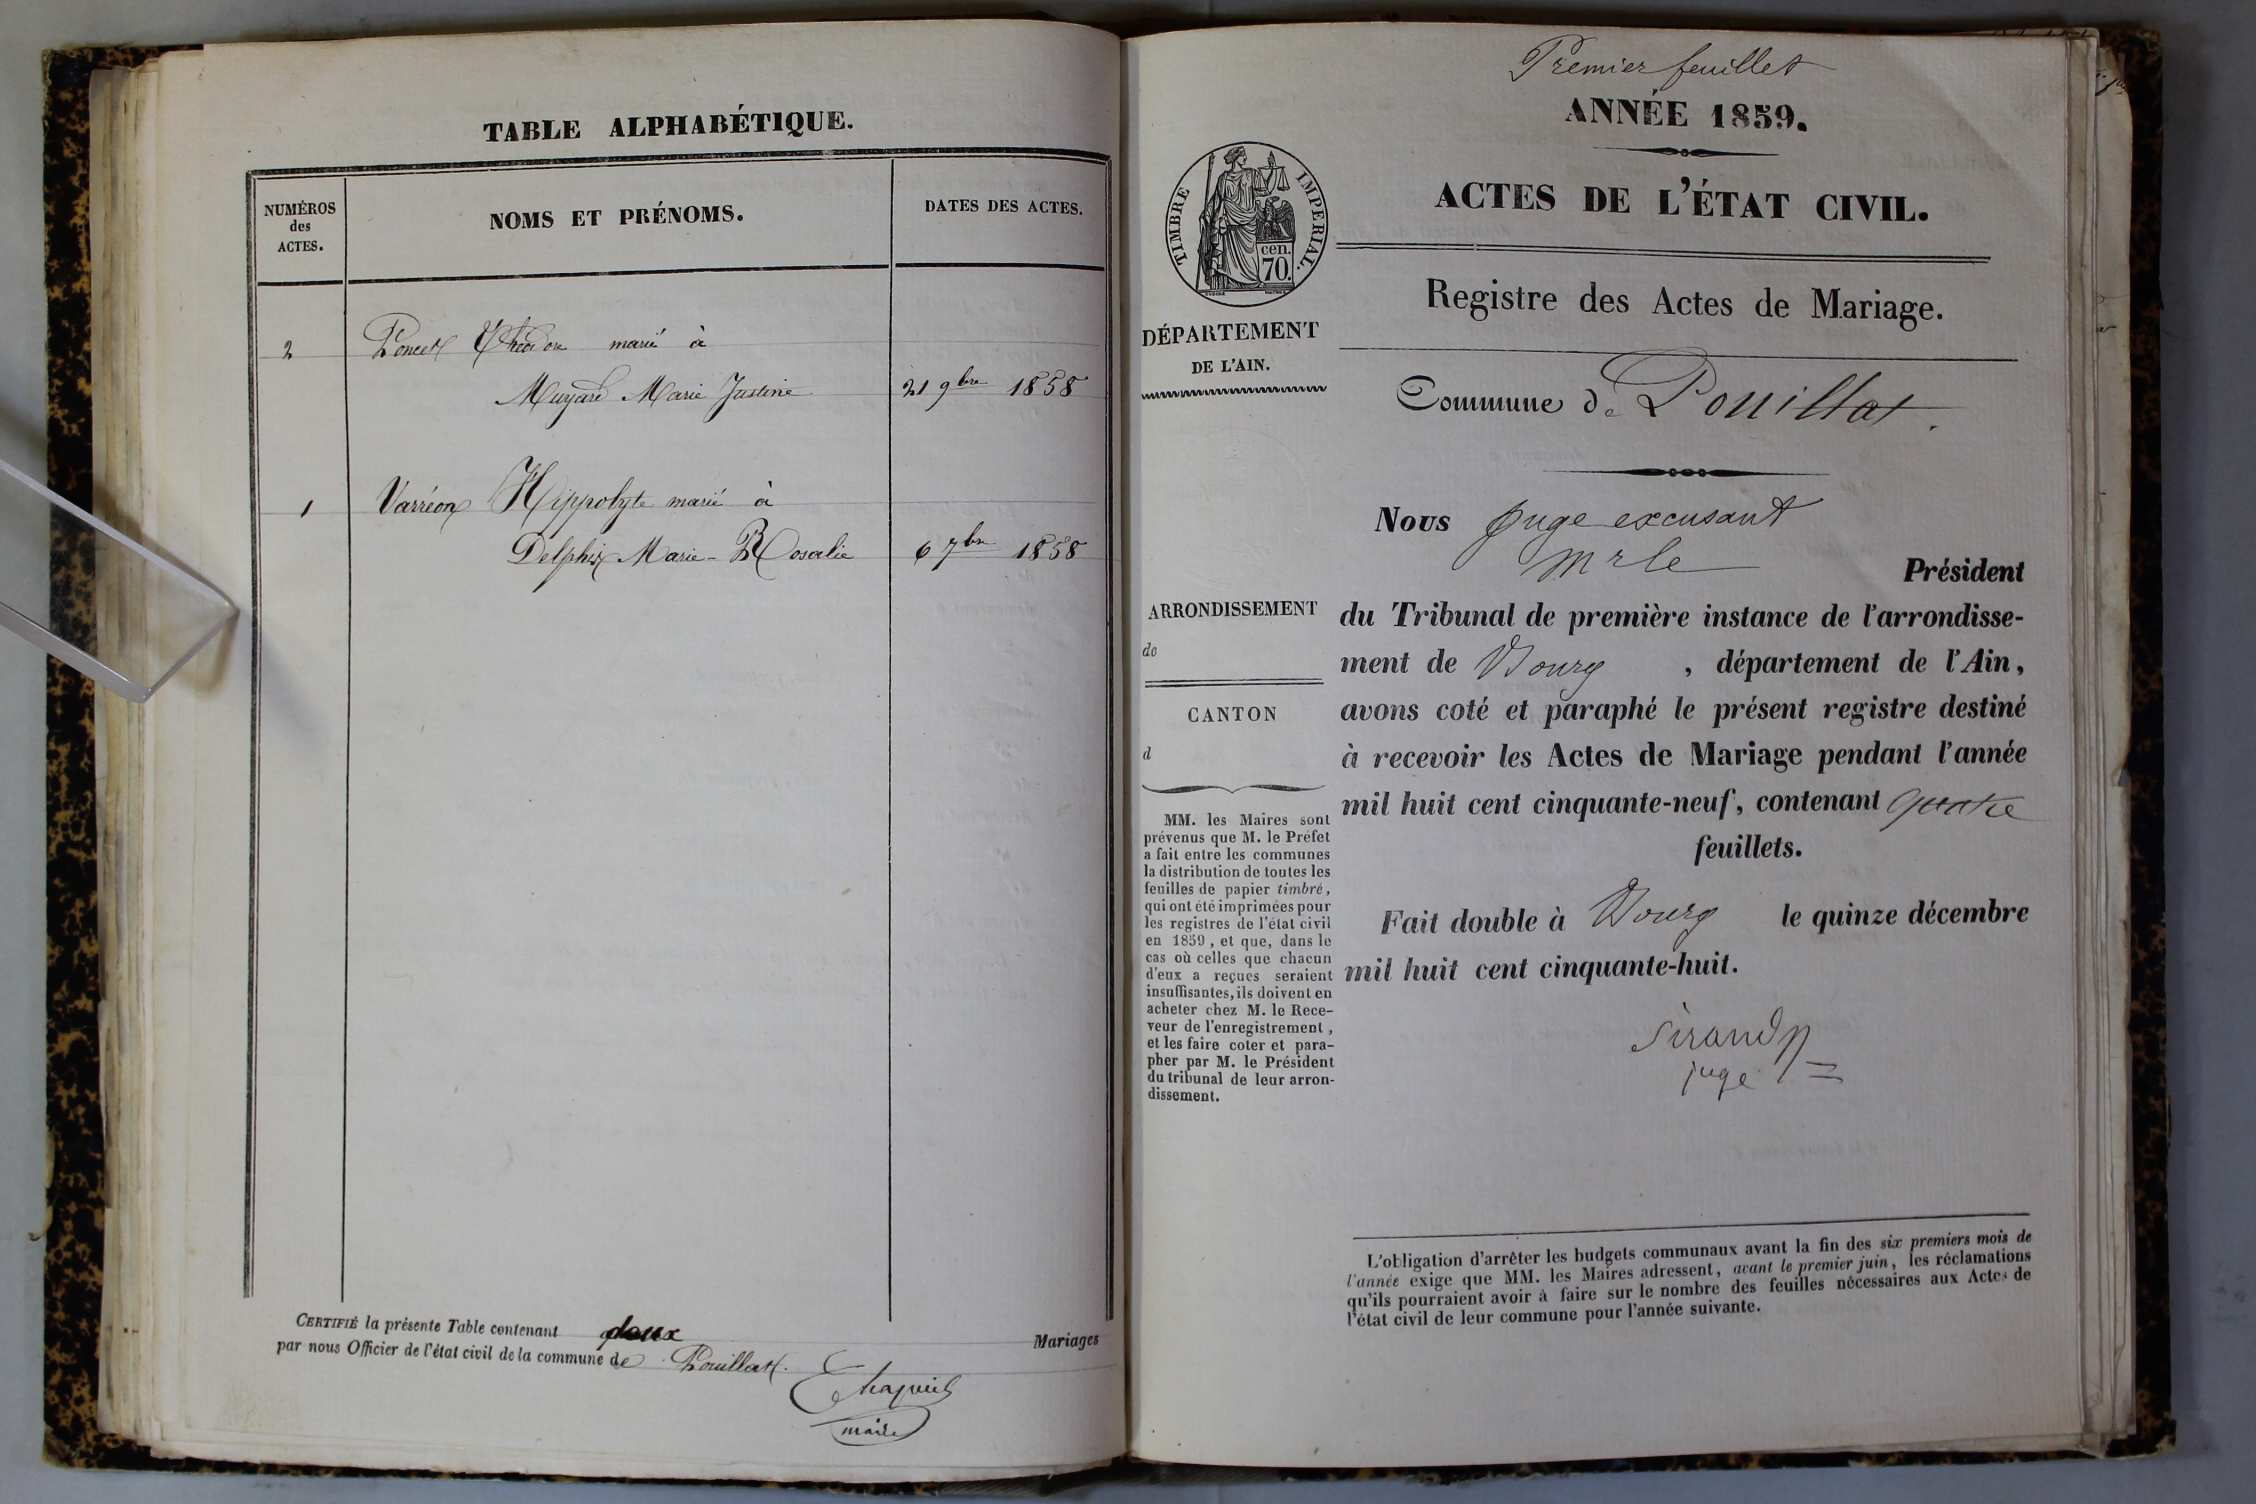 TABLE ALPHABÉTIQUE.
NUMÉROS
des
ACTES.
NOMS ET PRÉNOMS.
DATES DES ACTES.
2 Poncet Théodore marié à
Muyard Marie Justine 21 9bre 1858
1 Varréon Hippolyte marié à
Delphin Marie-Rosalie 6 7bre 1858
CERTIFIÉ la présente Table contenant deux Mariages
par nous Officier de l'état civil de la commune de Pouillat.
maire
Premier feuillet
ANNÉE 1859.
ACTES DE L'ÉTAT CIVIL.
TIMBRE IMPERIAL.
cen.
70.
Registre des Actes de Mariage.
DÉPARTEMENT
DE L'AIN.
Commune de Pouillat.
Nous juge excusant
Mr le Président
ARRONDISSEMENT
de
CANTON
d
du Tribunal de première instance de l'arrondisse-
ment de Bourg, département de l'Ain,
avons coté et paraphé le présent registre destiné
à recevoir les Actes de Mariage pendant l'année
mil huit cent cinquante-neuf, contenant quatre
feuillets.
Fait double à Bourg le quinze décembre
mil huit cent cinquante-huit.
Sirand
juge
MM. les Maires sont
prévenus que M. le Préfet
a fait entre les communes
la distribution de toutes les
feuilles de papier timbré,
qui ont été imprimées pour
les registres de l'état civil
en 1859, et que, dans le
cas où celles que chacun
d'eux a reçues seraient
insuffisantes, ils doivent en
acheter chez M. le Rece-
veur de l'enregistrement,
et les faire coter et para-
pher par M. le Président
du tribunal de leur arron-
dissement.
L'obligation d'arrêter les budgets communaux avant la fin des six premiers mois de
l'année exige que MM. les Maires adressent, avant le premier juin, les réclamations
qu'ils pourraient avoir à faire sur le nombre des feuilles nécessaires aux Actes de
l'état civil de leur commune pour l'année suivante.